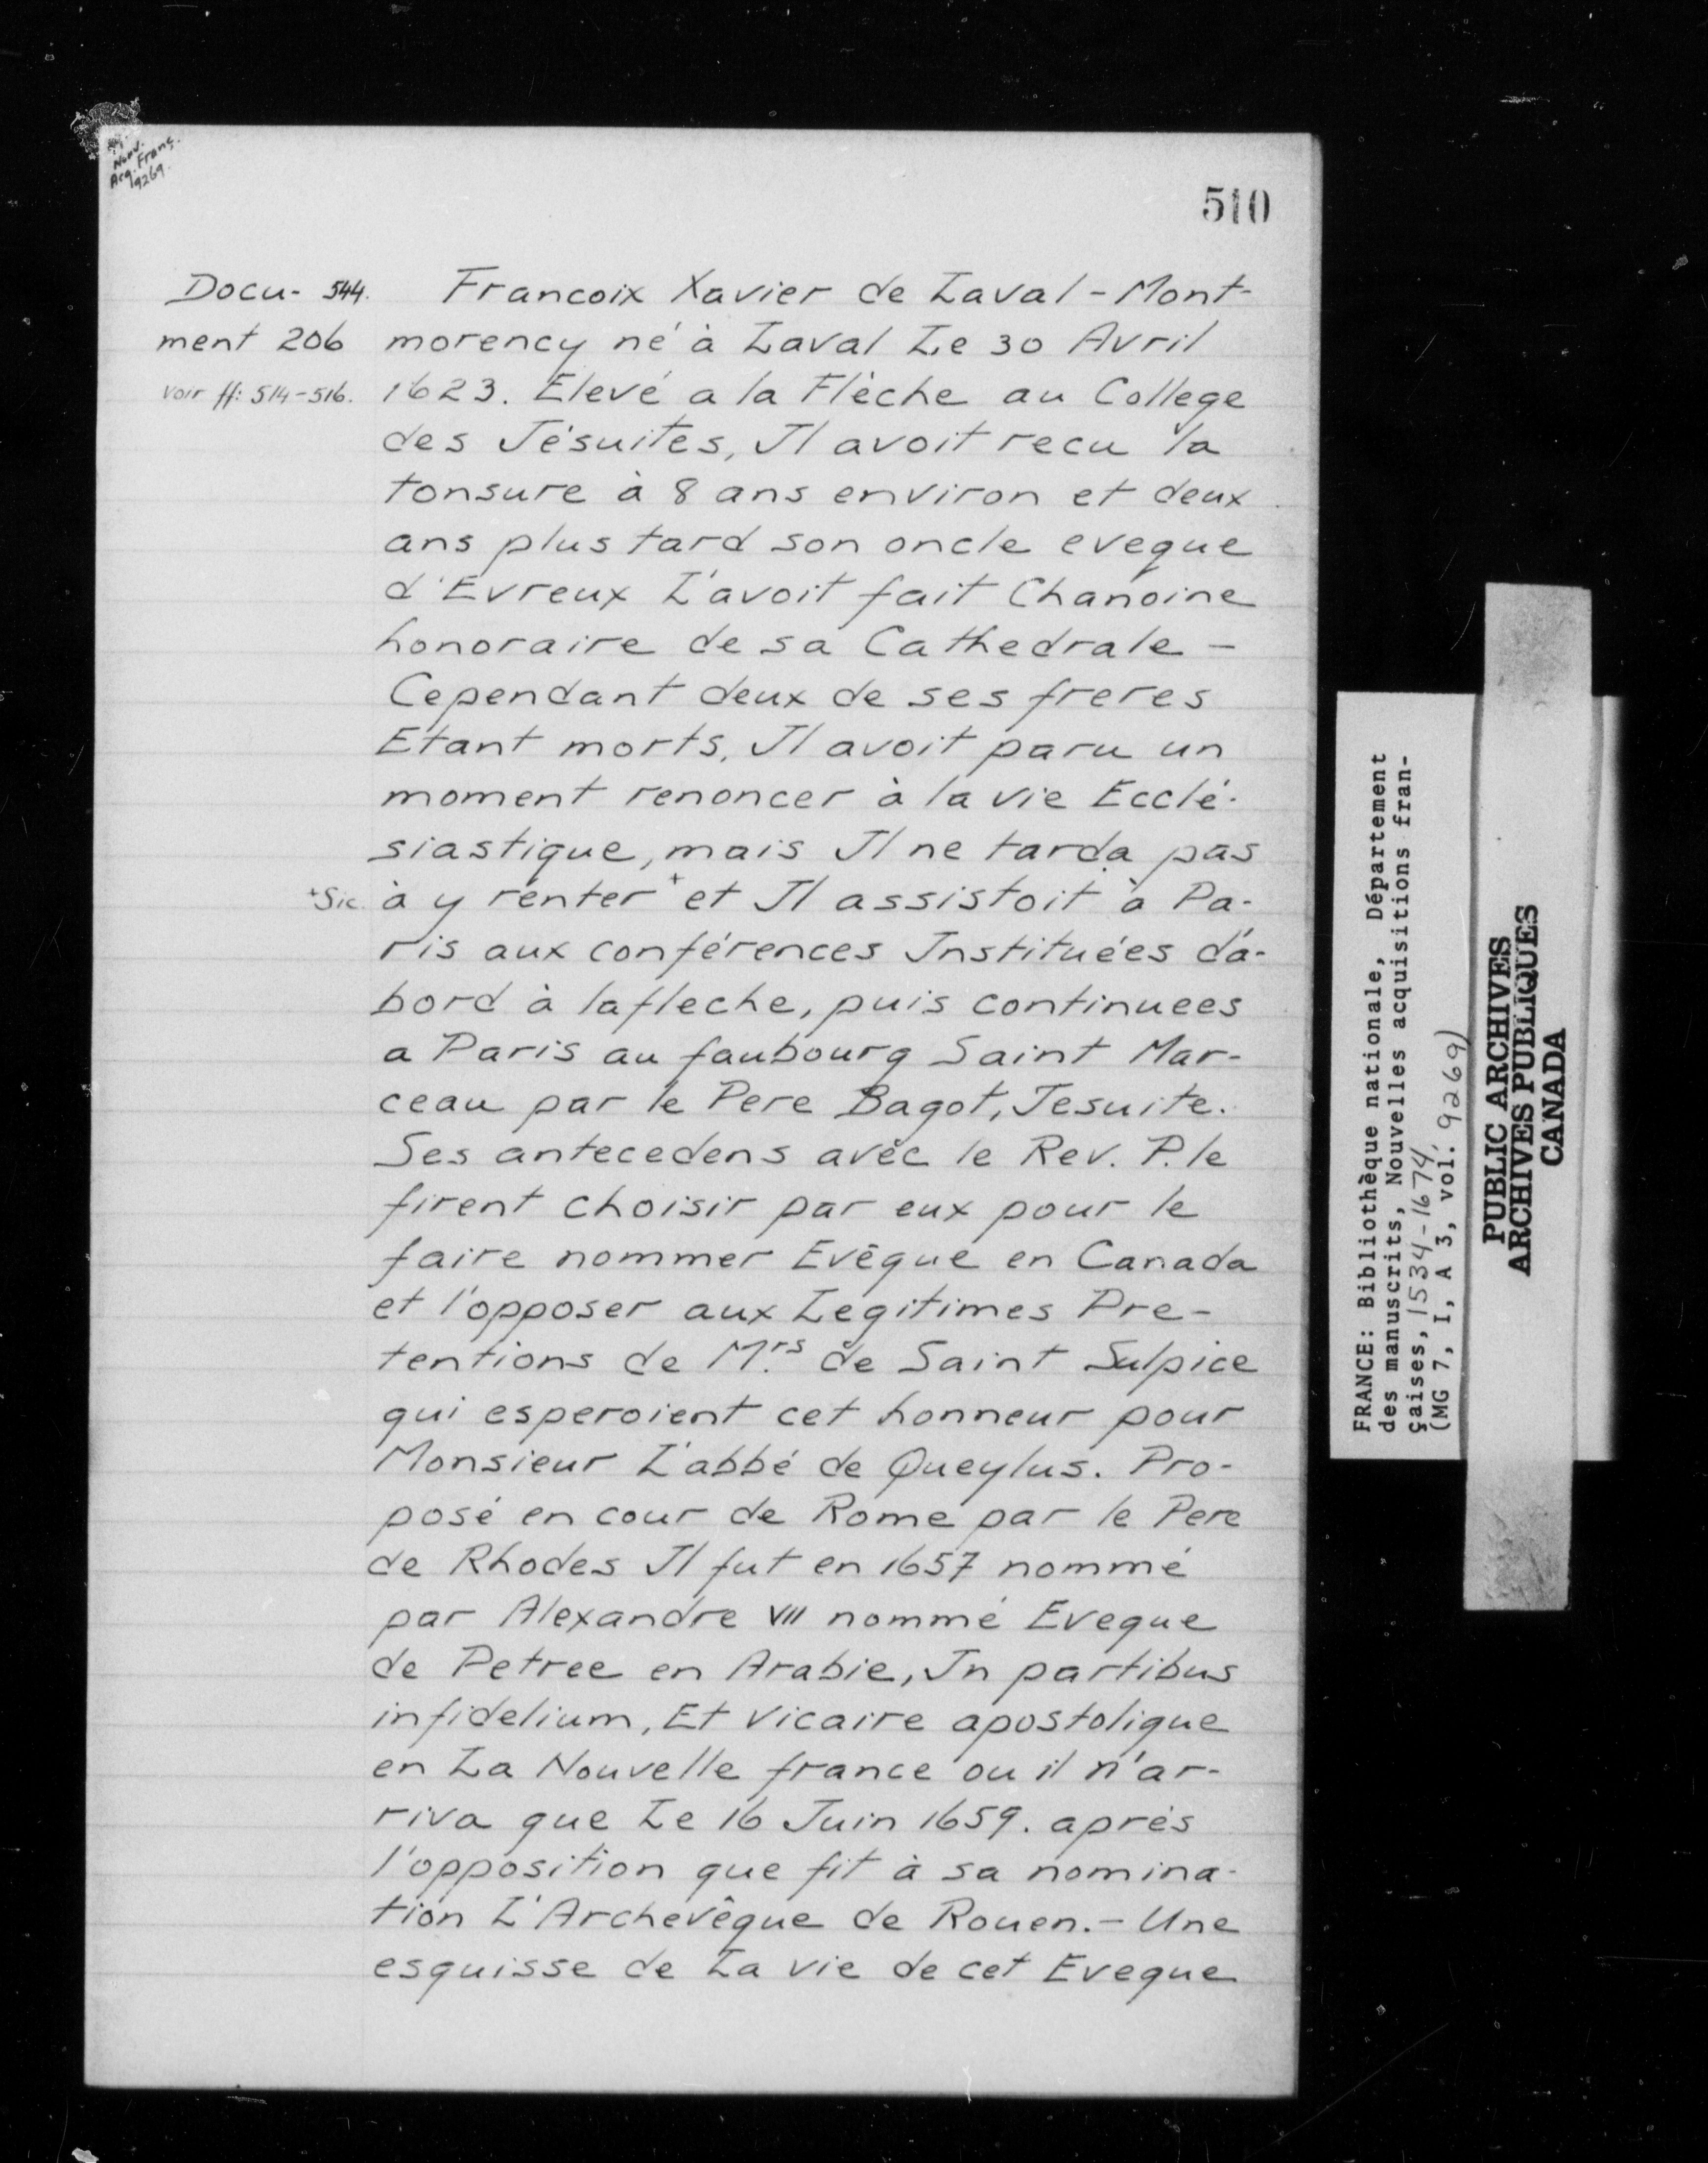 Nouv.
Acq. Franç.
9269.
510
Docu- 544.
ment 206
voir ff: 514-516.
Francoix Xavier de Laval-Mont-
morency né à Laval Le 30 Avril
1623. Elevé a la Flèche au College
des Jésuites, Il avoit recu la
tonsure à 8 ans environ et deux
ans plus tard son oncle eveque
d'Evreux L'avoit fait Chanoine
honoraire de sa Cathedrale -
Cependant deux de ses freres
Etant morts, Il avoit paru un
moment renoncer à la vie Ecclé-
siastique, mais Il ne tarda pas
+Sic. à y rénter + et Il assistoit à Pa-
ris aux conférences Instituées d'a-
bord à lafleche, puis continuees
a Paris au faubourg Saint Mar-
ceau par le Pere Bagot, Jesuite.
Ses antecedens avec le Rev. P. le
firent choisir par eux pour le
faire nommer Evêque en Canada
et l'opposer aux Legitimes Pre-
tentions de M.rs de Saint Sulpice
qui esperoient cet honneur pour
Monsieur L'abbé de Queylus. Pro-
posé en cour de Rome par le Pere
de Rhodes Il fut en 1657 nommé
par Alexandre VII nommé Eveque
de Petree en Arabie, In partibus
infidelium, Et vicaire apostolique
en La Nouvelle france ou il n'ar-
riva que Le 16 Juin 1659. après
l'opposition que fit à sa nomina-
tion L'Archevêque de Rouen.- Une
esquisse de La vie de cet Eveque
FRANCE: Bibliothèque nationale, Département
des manuscrits, Nouvelles acquisitions fran-
çaises, 1534-1674
(MG 7, I, A 3, vol. 9269)
PUBLIC ARCHIVES
ARCHIVES PUBLIQUES
CANADA